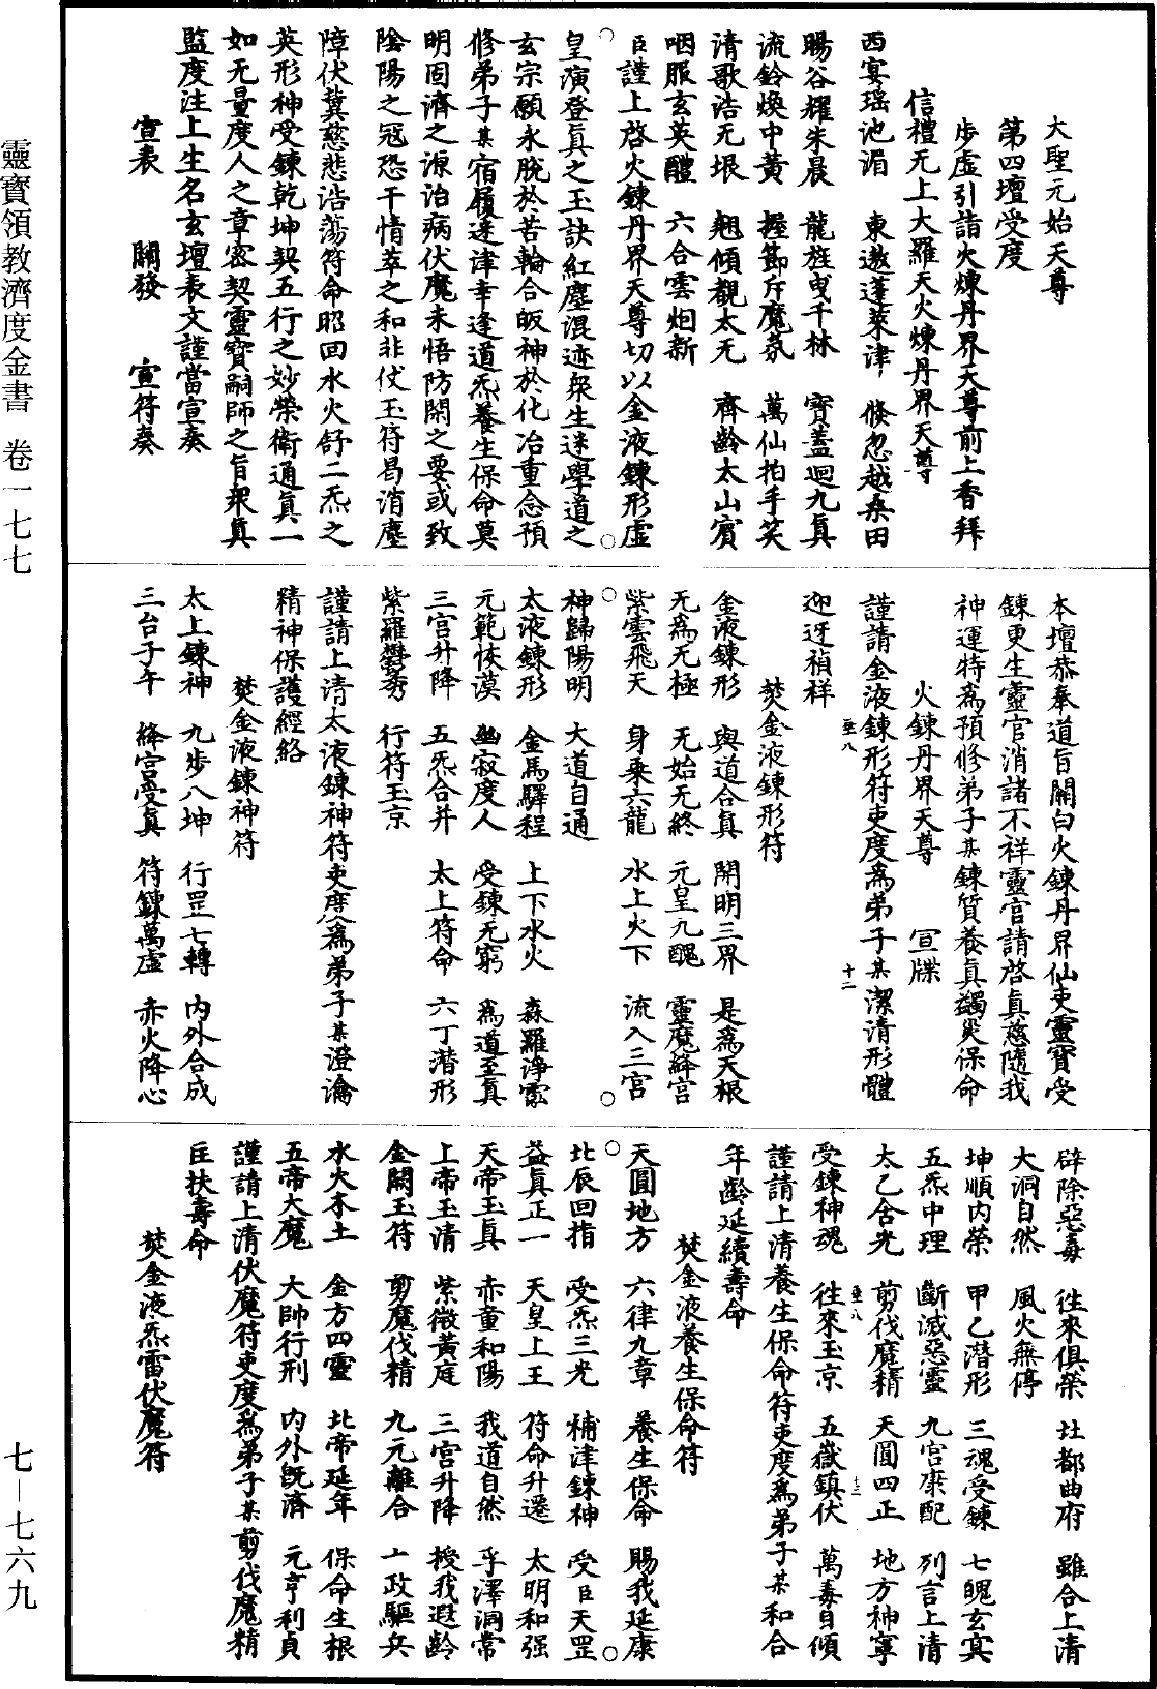 大聖元始天尊
第四壇受度
步虛引詣火煉丹界天尊前上香拜
信禮无上大羅天火煉丹界天尊
西宴瑤池湄　東遨蓬萊津　倐忽越桑田
暘谷耀朱晨　龍旌曳千林　寶蓋迴九真
流鈴煥中黃　握節斥魔氛　萬仙拍手笑
清歌浩无垠　翹傾覩太无　齊齡太山賓
咽服玄英醴　六合雲炮新
臣謹上啓火鍊丹界天尊切以金液鍊形虛
皇演登真之玉訣紅塵混迹衆生迷學道之
玄宗願永脫於苦輪合皈神於化冶重念預
修弟子某宿履迷津幸逢道炁養生保命莫
明固濟之源治病伏魔未悟防閑之要或致
陰陽之寇恐干情萃之和非仗玉符曷消塵
障伏冀慈悲浩蕩符命昭回水火舒二炁之
英形神受鍊乾坤契五行之妙榮衛通真一
如无量度人之章密契靈寶嗣師之旨衆真
監度注上生名玄壇表文謹當宣奏
宣表　關發　宣符奏
本壇恭奉道旨關白火鍊丹界仙吏靈寶受
鍊更生靈官消諸不祥靈官請啓真慈隨我
神運特為預修弟子某鍊質養真蠲災保命
火鍊丹界天尊　宣牒
謹請金液鍊形符吏度為弟子某潔清形體
垂八　十二
迎迓禎祥
焚金液鍊形符
金液鍊形　與道合真　開明三界　是為天根
无為无極　无始无終　元皇九醜　靈魔絳宮
紫雲飛天　身乗六龍　水上火下　流入三宮
神歸陽明　大道自通
太液鍊形　金馬驛程　上下水火　森羅淨霐
元範恢漠　幽寂度人　受鍊无窮　為道至真
三宮升降　五炁合并　太上符命　六丁潛形
紫羅欝秀　行符玉京
謹請上清太液鍊神符吏度為弟子某澄瀹
精神保護經絡
焚金液鍊神符
太上鍊神　九步八坤　行罡七轉　內外合成
三台子午　絳宮憂真　符鍊萬虛　赤火降心
辟除惡毒　徃來俱榮　壯都曲府　雖合上清
大洞自然　風火無停
坤順內榮　甲乙潛形　三魂受鍊　七魄玄宾
五炁中理　斷滅惡靈　九宮康配　列言上清
太乙含光　剪伐魔精　天圓四正　地方神寧
受鍊神魂　徃來玉京　五嶽鎮伏　萬毒自傾
垂八　十三
謹請上清養生保命符吏度為弟子某和合
年齡延續壽命
焚金液養生保命符
天圓地方　六律九章　養生保命　賜我延康
北辰回指　受炁三光　補津鍊神　受臣天罡
益真正一　天皇上王　符命升遷　太明和强
天帝玉真　赤童和陽　我道自然　乎澤洞常
上帝玉清　紫微黃庭　三宮升降　授我遐齡
金闕玉符　剪魔伐精　九元離合　一政驅兵
水火木土　金方四靈　北帝延年　保命生根
五帝大魔　大帥行刑　內外旣濟　元亨利貞
謹請上清伏魔符吏度為弟子某剪伐魔精
臣扶壽命
焚金液炁雷伏魔符
靈寶領教濟度金書　卷一七七
七－七六九